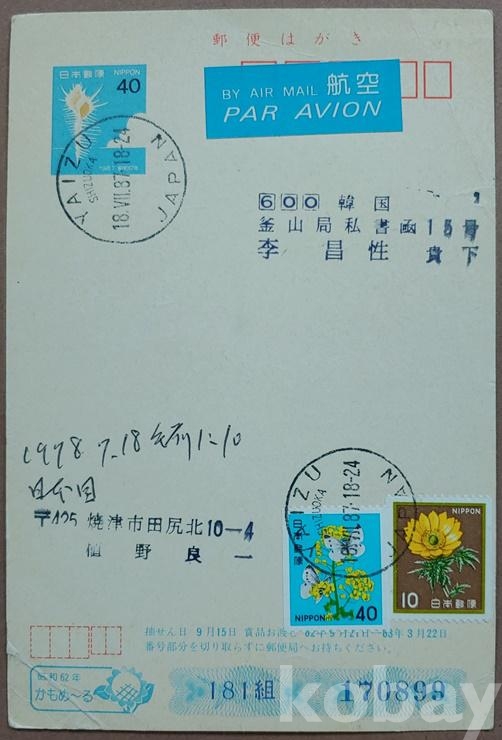 郵便はがき
日本郵便 NIPPON
40
BY AIR MAIL 航空
PAR AVION
YAIZU
SHIZUOKA
18.VII.87.18-24
JAPAN
600 韓国
釜山局私書函 15号
李 昌 性 貴下
1978 7.18
〒425 焼津市田尻北10-4
植 野 良 一
YAIZU
SHIZUOKA
18.VII.87.18-24
JAPAN
日本郵便
NIPPON 40
NIPPON
10 日本郵便
抽せん日 9月15日 賞品お渡し
63年3月22日
番号部分を切り取らずに郵便局へお持ちください。
昭和62年
かもめ~る
181組 170899
kobay